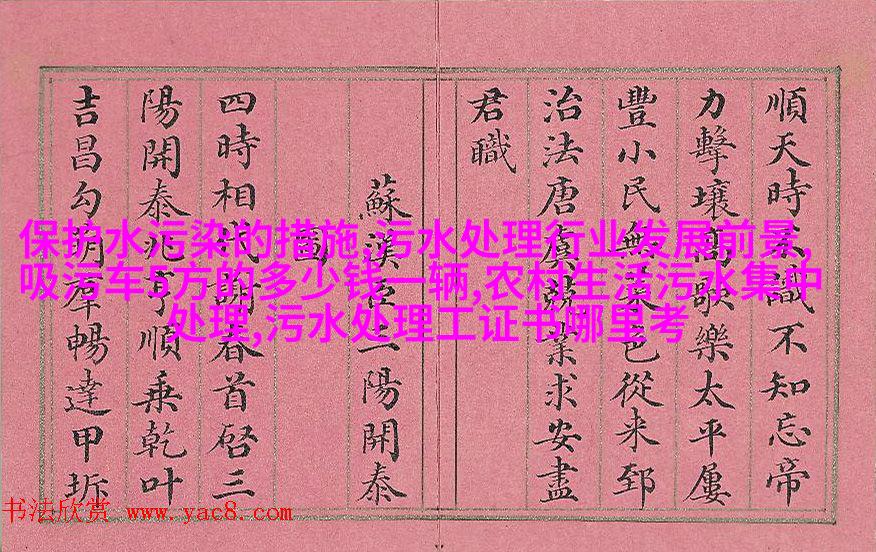 保护水污染的措施,污水处理行业发展前景,
吸污车5方的多少钱一辆,农村生活污水集中
处理,污水处理工证书哪里考
順天時不識不知忘帝
力擊壤高歌樂太平屢
豐小民無菜色從來郅
治法唐虞業求安盡
君職
蘇漢臣三陽開泰
圖
四時相代謝春首啓三
陽開泰兆亨順乗乾叶
吉昌勾萌羣暢達甲坼
书法欣赏 www.yac8.com